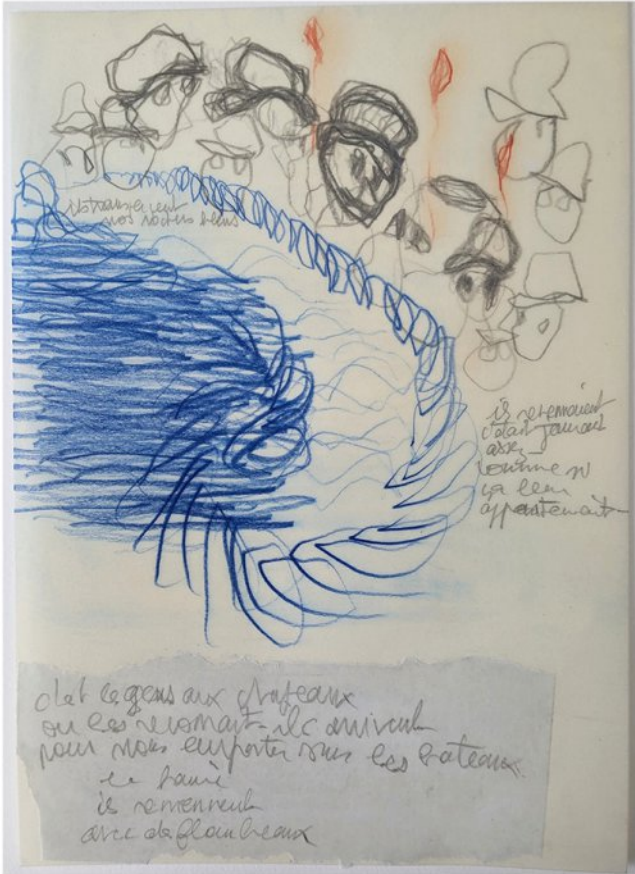 nos rochers
ils revenaient
c'était jamais
assez
comme si
ça leur
appartenait
c'est les gens aux chapeaux
on les reconnait ils arrivent
pour nous emporter sous les bateaux
ils reviennent
avec des flambeaux